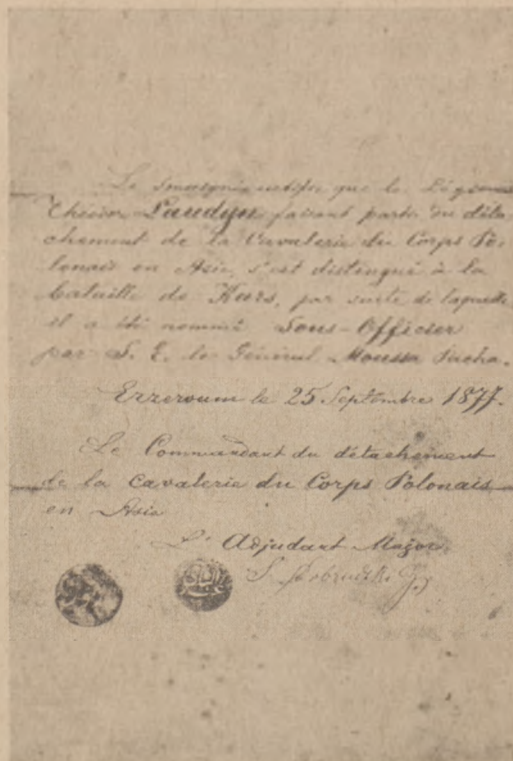 Le Soussigné certifie que le Légionnaire
Laudyn, faisant partie du déta-
chement de la Cavalerie du Corps Po-
lonais en Asie, s'est distingué à la
bataille de Kars, par suite de laquelle
il a été nommé Sous-Officier
par S. E. le Général Moussa Pacha.
Erzeroum le 25 Septembre 1877.
Le Commandant du détachement
de la cavalerie du Corps Polonais
en Asie
L'Adjudant Major